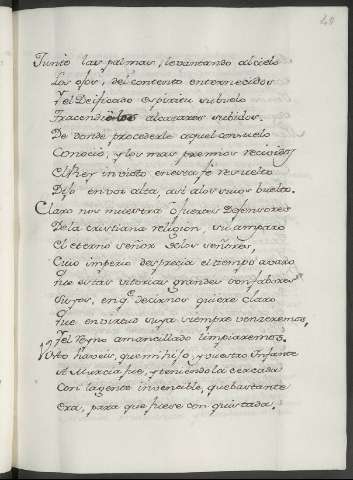 48
Junto las palmas, levantando al cielo
Los ojos, del contento enternecidos
Y el Deificado espiritu su buelo
Trascendio los alcaçares subidos.
De donde procederle aquel consuelo
Conocio, y los mas premios recividos
El Rey invicto en esta fe resuelto
Dijo en voz alta, asi a los suios buelto.
Claro nos muestra ô fuertes Defensores
De la cristiana religion, su amparo
El eterno señor de los señores,
Cuio imperio desprecia el tiempo avaro
que estas vitorias grandes son fabores
Suyos, en q.e decirnos quiere claro
Que en virtud suya siempre venzeremos,
Y el Reyno amancillado limpiaremos.
Visto haveis, que mi hijo, y vuestro Infante
A Murcia fue, y teniendola cercada
Con la gente invencible, que bastante
Era, para que fuese conquistada.